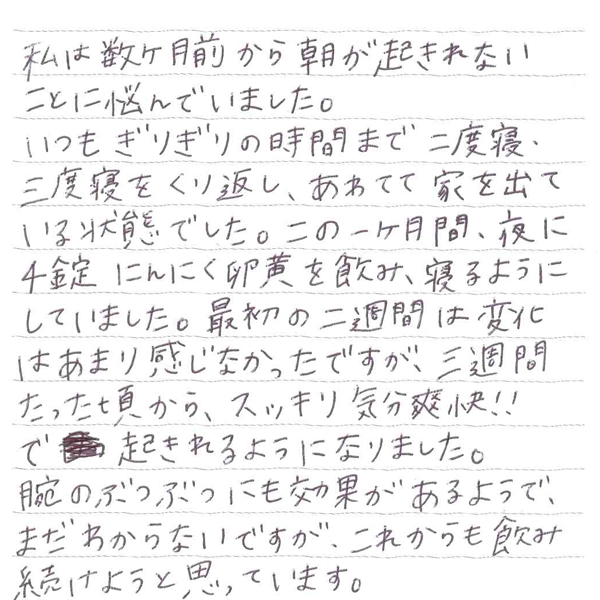 私は数ケ月前から朝が起きれない
ことに悩んでいました。
いつもぎりぎりの時間まで二度寝・
三度寝をくり返し、あわてて家を出て
いる状態でした。この一ケ月間、夜に
4錠にんにく卵黄を飲み、寝るように
していました。最初の二週間は変化
はあまり感じなかったですが、三週間
たった頃から、スッキリ気分爽快!!
で起きれるようになりました。
腕のぶつぶつにも効果があるようで、
まだわからないですが、これからも飲み
続けようと思っています。